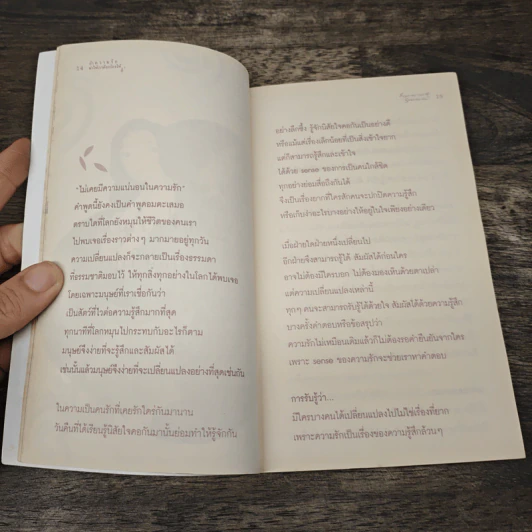 "ไม่เคยมีความแน่นอนในความรัก"
คำพูดนี้ยังคงเป็นคำพูดอมตะเสมอ
ตราบใดที่โลกยังหมุนให้ชีวิตของคนเรา
ไปพบเจอเรื่องราวต่างๆ มากมายอยู่ทุกวัน
ความเปลี่ยนแปลงก็จะกลายเป็นเรื่องธรรมดา
ที่ธรรมชาติมอบไว้ ให้ทุกสิ่งทุกอย่างในโลกได้พบเจอ
โดยเฉพาะมนุษย์ที่เราเชื่อกันว่า
เป็นสัตว์ที่ไวต่อความรู้สึกมากที่สุด
ทุกนาทีที่โลกหมุนไปกระทบกับอะไรก็ตาม
มนุษย์จึงง่ายที่จะรู้สึกและสัมผัสได้
เช่นนั้นแล้วมนุษย์จึงง่ายที่จะเปลี่ยนแปลงอย่างที่สุดเช่นกัน
ในความเป็นคนรักที่เคยรักใคร่กันมานาน
วันคืนที่ได้เรียนรู้นิสัยใจคอกันมานั้นย่อมทำให้รู้จักกัน
อย่างลึกซึ้ง รู้จักนิสัยใจคอกันเป็นอย่างดี
หรือแม้แต่เรื่องเล็กน้อยที่เป็นสิ่งเข้าใจยาก
แต่ก็สามารถรู้สึกและเข้าใจ
ได้ด้วย sense ของการเป็นคนใกล้ชิด
ทุกอย่างย่อมสื่อถึงกันได้
จึงเป็นเรื่องยากที่ใครสักคนจะปกปิดความรู้สึก
หรือเก็บงำอะไรบางอย่างไว้ให้อยู่ในใจเพียงอย่างเดียว
เมื่อฝ่ายใดฝ่ายหนึ่งเปลี่ยนไป
อีกฝ่ายจึงสามารถรู้ได้ สัมผัสได้ก่อนใคร
อาจไม่ต้องมีใครบอก ไม่ต้องมองเห็นด้วยตาเปล่า
แต่ความเปลี่ยนแปลงเหล่านี้
ทุกๆ คนจะสามารถรับรู้ได้ด้วยใจ สัมผัสได้ด้วยความรู้สึก
บางครั้งคำตอบหรือข้อสรุปว่า
ความรักไม่เหมือนเดิมแล้วก็ไม่ต้องรอคำยืนยันจากใคร
เพราะ sense ของความรักจะช่วยเราหาคำตอบ
การรับรู้ว่า...
มีใครบางคนได้เปลี่ยนแปลงไปไม่ใช่เรื่องที่ยาก
เพราะความรักเป็นเรื่องของความรู้สึกล้วนๆ